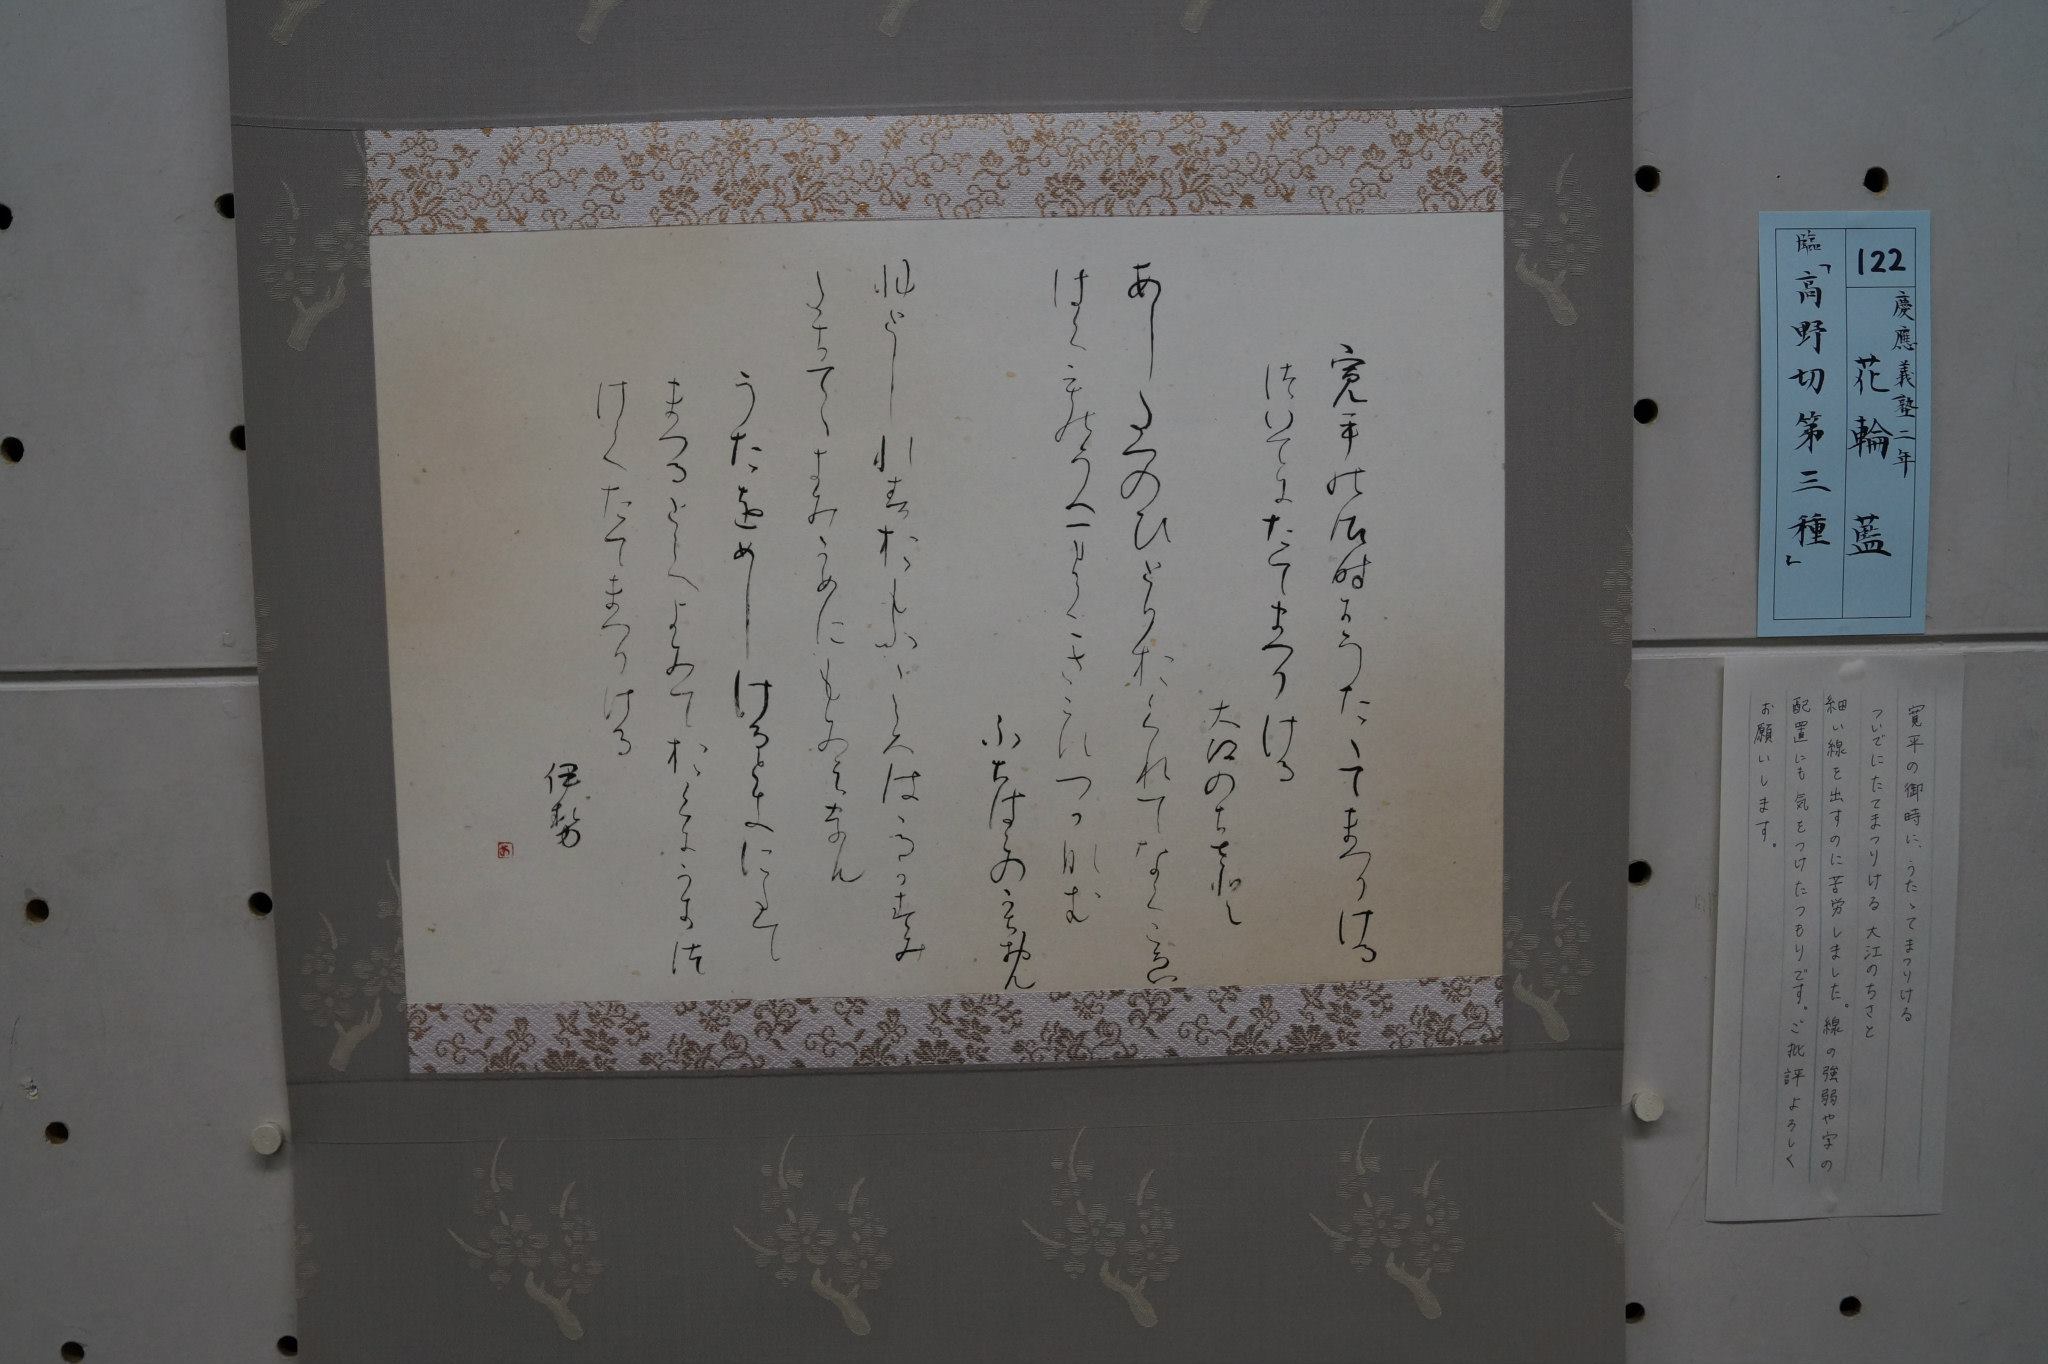 寛平の御時にうたゝてまつりける
ついてにたてまつりける
大江のちさと
あしたつのひとりおくれてなくこゑは
くものうへまてきこえつかなむ
ふちはらのかちおむ
ひとしれすおもふこゝろははるかすみ
たちいてゝきみかめにもみえなん
うためしけるときに
たてまつるとてよみておくにかきつ
けてたてまつりける
伊勢
122
慶應義塾二年
花輪 藍
臨「高野切第三種」
寛平の御時に、うたゝてまつりける
ついでにたてまつりける 大江のちさと
細い線を出すのに苦労しました。線の強弱や字の
配置にも気をつけたつもりです。ご批評よろしく
お願いします。